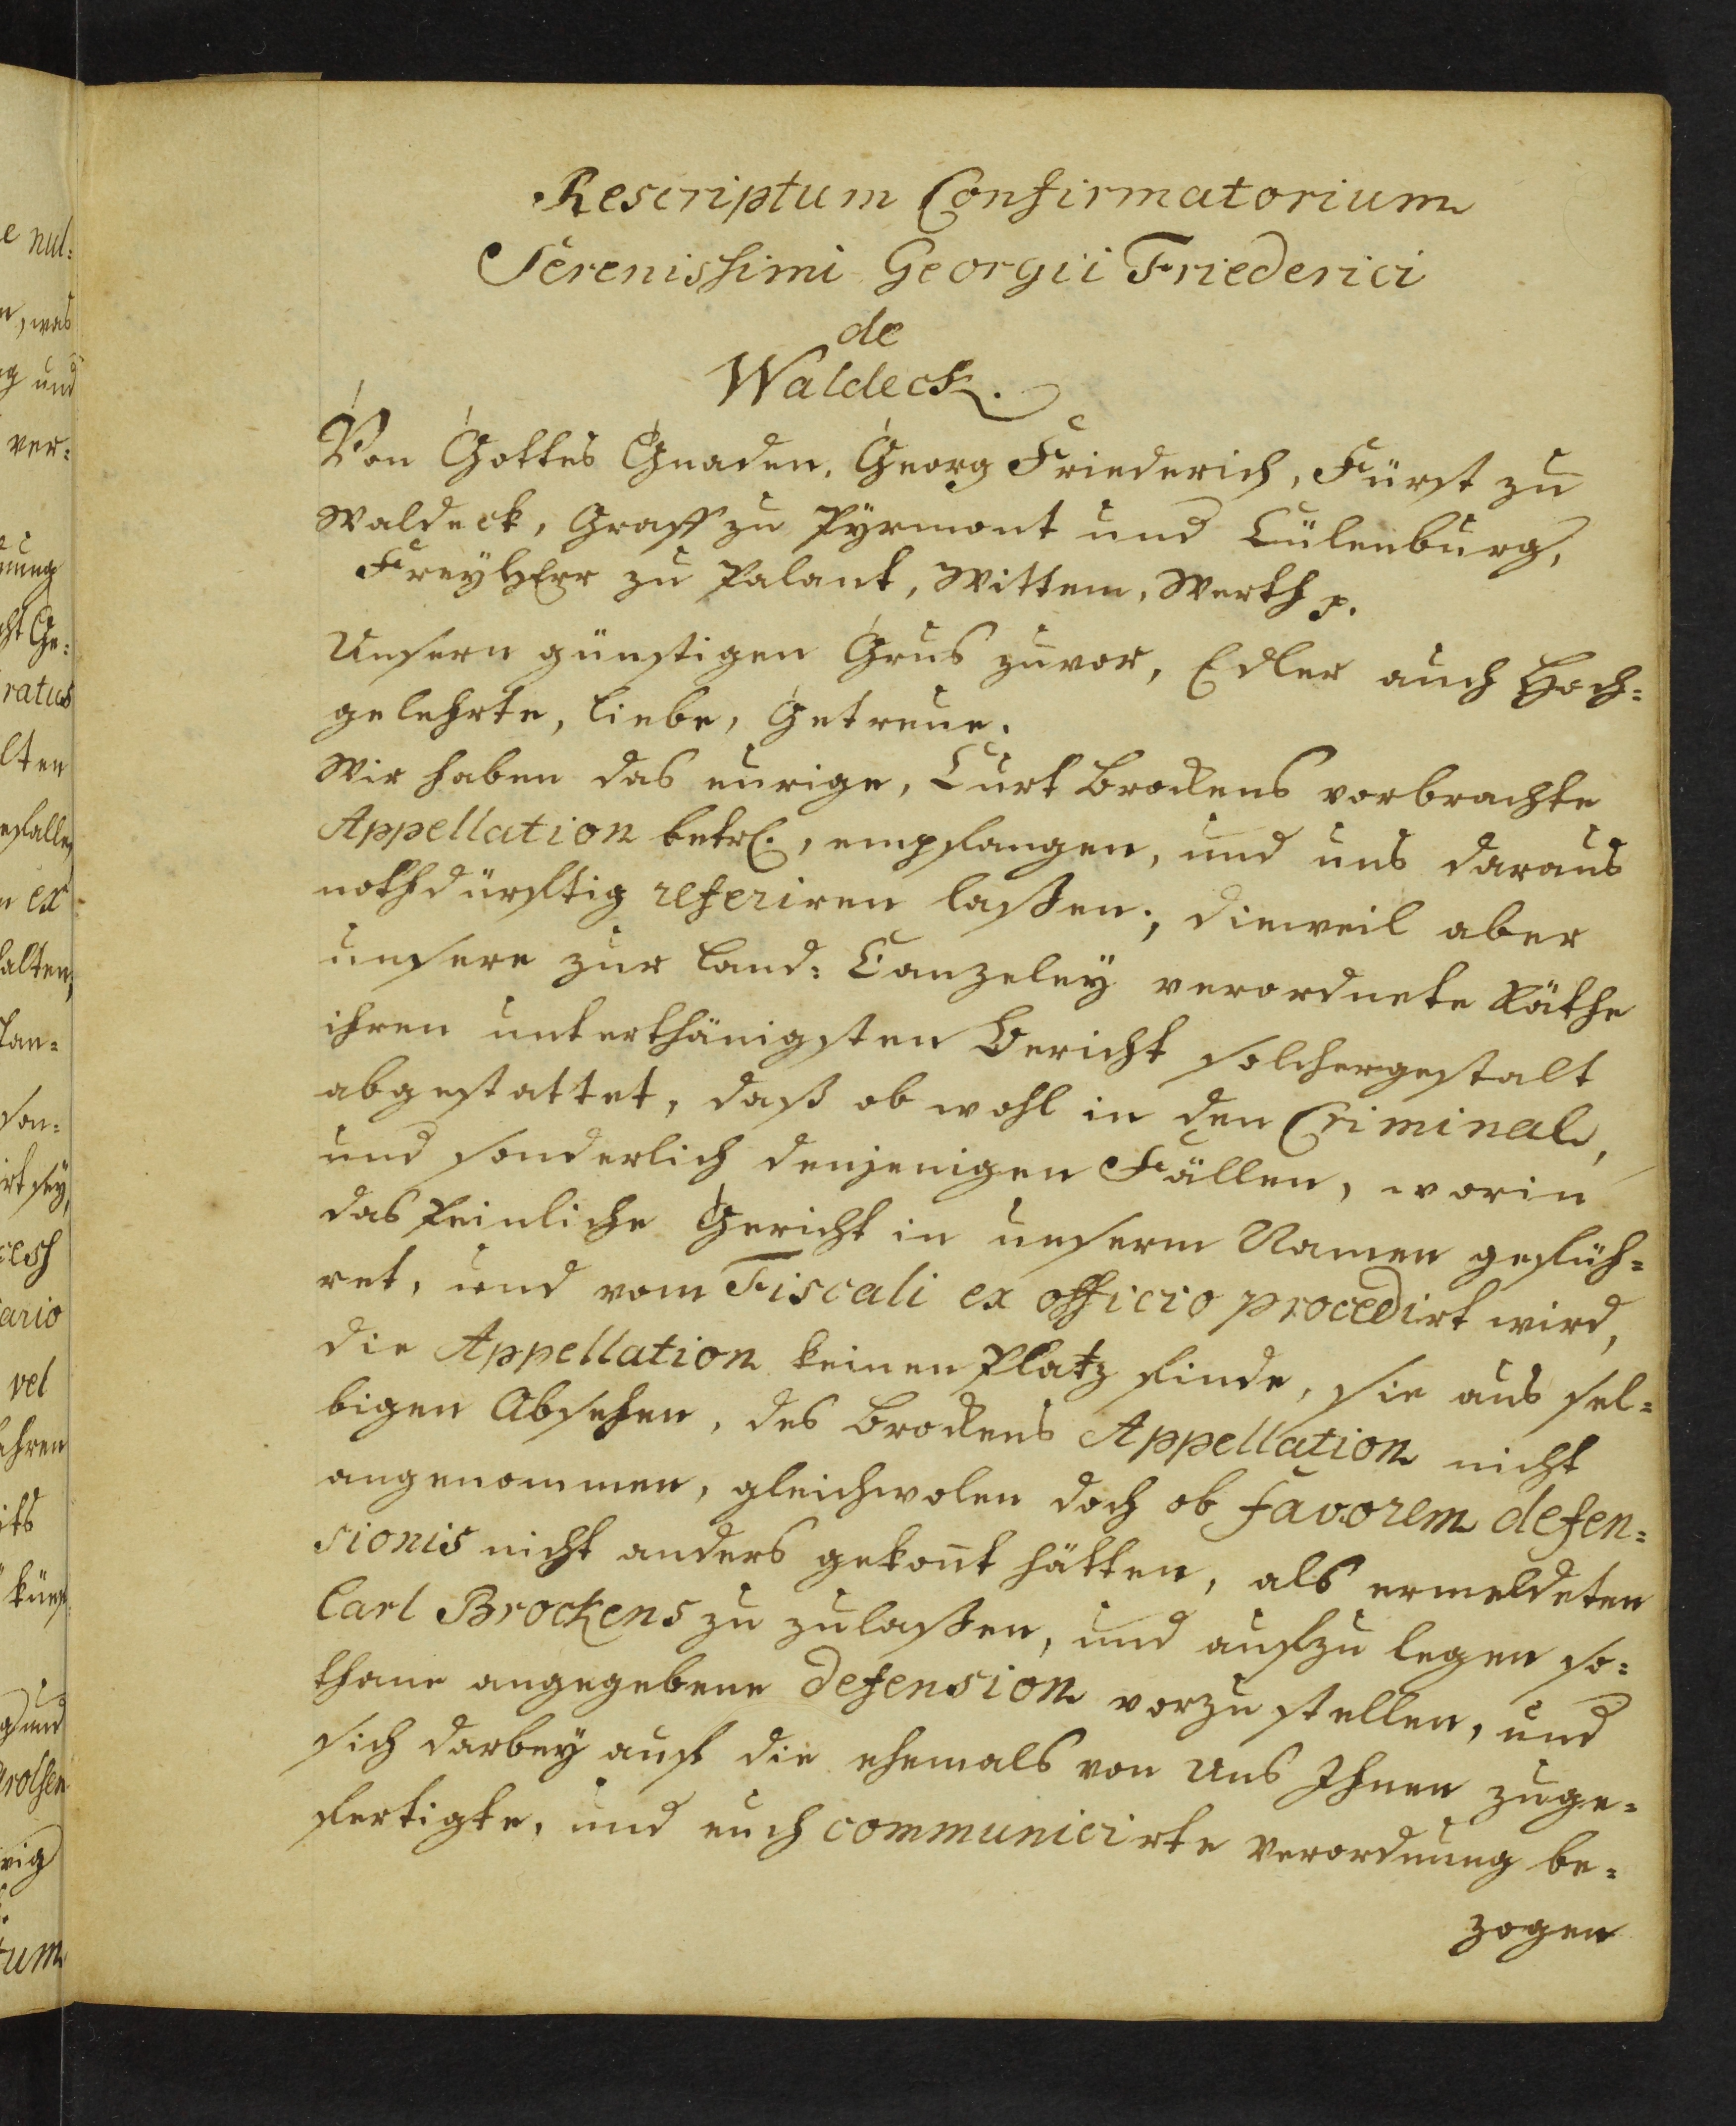 Rescriptum Confirmatorium
Serenissimi Georgii Friederici
de
Waldeck.
Von Gottes Gnaden, Georg Friederich, Fürst zu
Waldeck, Graff zu Pÿrmont und Cülenburg,
FreyHErr zu Palant, Wittem, Werth p.
Unsern günstigen Grus zuvor, Edler auch Hoch=
gelehrte, liebe, Getreue.
Wir haben das eurige, Curt Brockens vorbrachte
Appellation betrf., empfangen, und uns daraus
nothdürfftig referiren laßen; dieweil aber
unsere zur Land= Canzeleÿ verordnete Räthe
ihren unterthänigsten Bericht solchergestalt
abgestattet, daß ob wohl in den Criminal,
und sonderlich denjenigen Fällen, worin
das Peinliche Gericht in unserm Namen geführ=
ret, und vom Fiscali ex officio procedirt wird,
die Appellation keinen Platz finde, sie aus sel=
bigen Absehen, des Brockens Appellation nicht
angenommen, gleichwolen doch ob favorem defen=
sionis nicht anders gekoñt hätten, als ermeldeten
Carl Brockens zu zulaßen, und aufzulegen so=
thane angegebene defension vorzustellen, und
sich darbeÿ auf die ehemals von uns Ihnen zuge=
fertigte, und euch communicirte Verordnung be=
zogen
e nul=
n, was
g und
ver=
ung
cht Ge=
ratus
lten
n ex
alten,
lan=
son=
rt seÿ,
ario
vel
ehren
its
und
rolsen
wig
tum